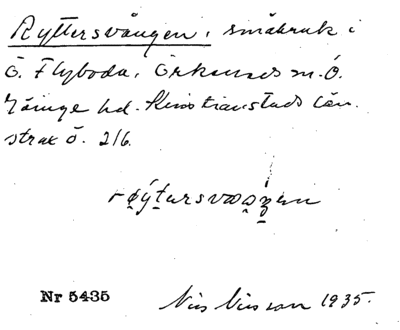 Ryttersvången, småbruk i
Ö. Flyboda, Örkeneds sn. Ö.
Göinge hd. Kristianstads län.
strax ö. 216.
Nr 5435 Nils Nilsson 1935.